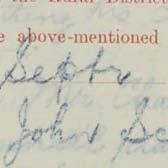 the Rural District
e above-mentioned
Septr
John Sc